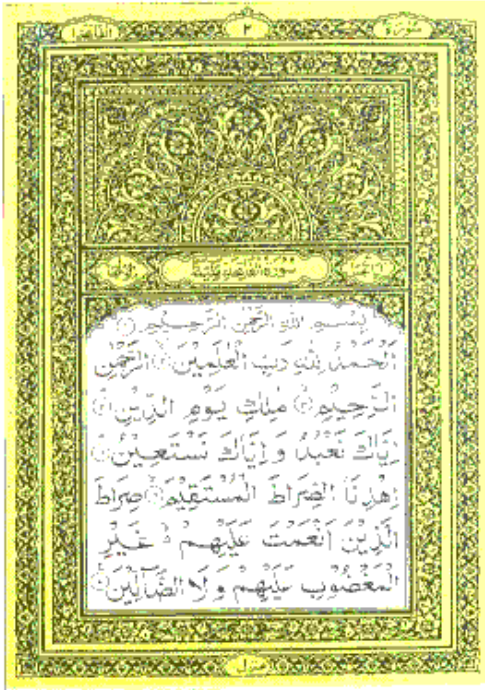 سورة ٢ الفاتحة
سورة الفاتحة مكية
بسم الله الرحمن الرحيم
الْحَمْدُ لِلّٰهِ رَبِّ الْعٰلَمِيْنَ الرَّحْمٰنِ
الرَّحِيْمِ مٰلِكِ يَوْمِ الدِّيْنِ
اِيَّاكَ نَعْبُدُ وَ اِيَّاكَ نَسْتَعِيْنُ
اِهْدِنَا الصِّرَاطَ الْمُسْتَقِيْمَ صِرَاطَ
الَّذِيْنَ اَنْعَمْتَ عَلَيْهِمْ غَيْرِ
الْمَغْضُوْبِ عَلَيْهِمْ وَ لَا الضَّآلِّيْنَ